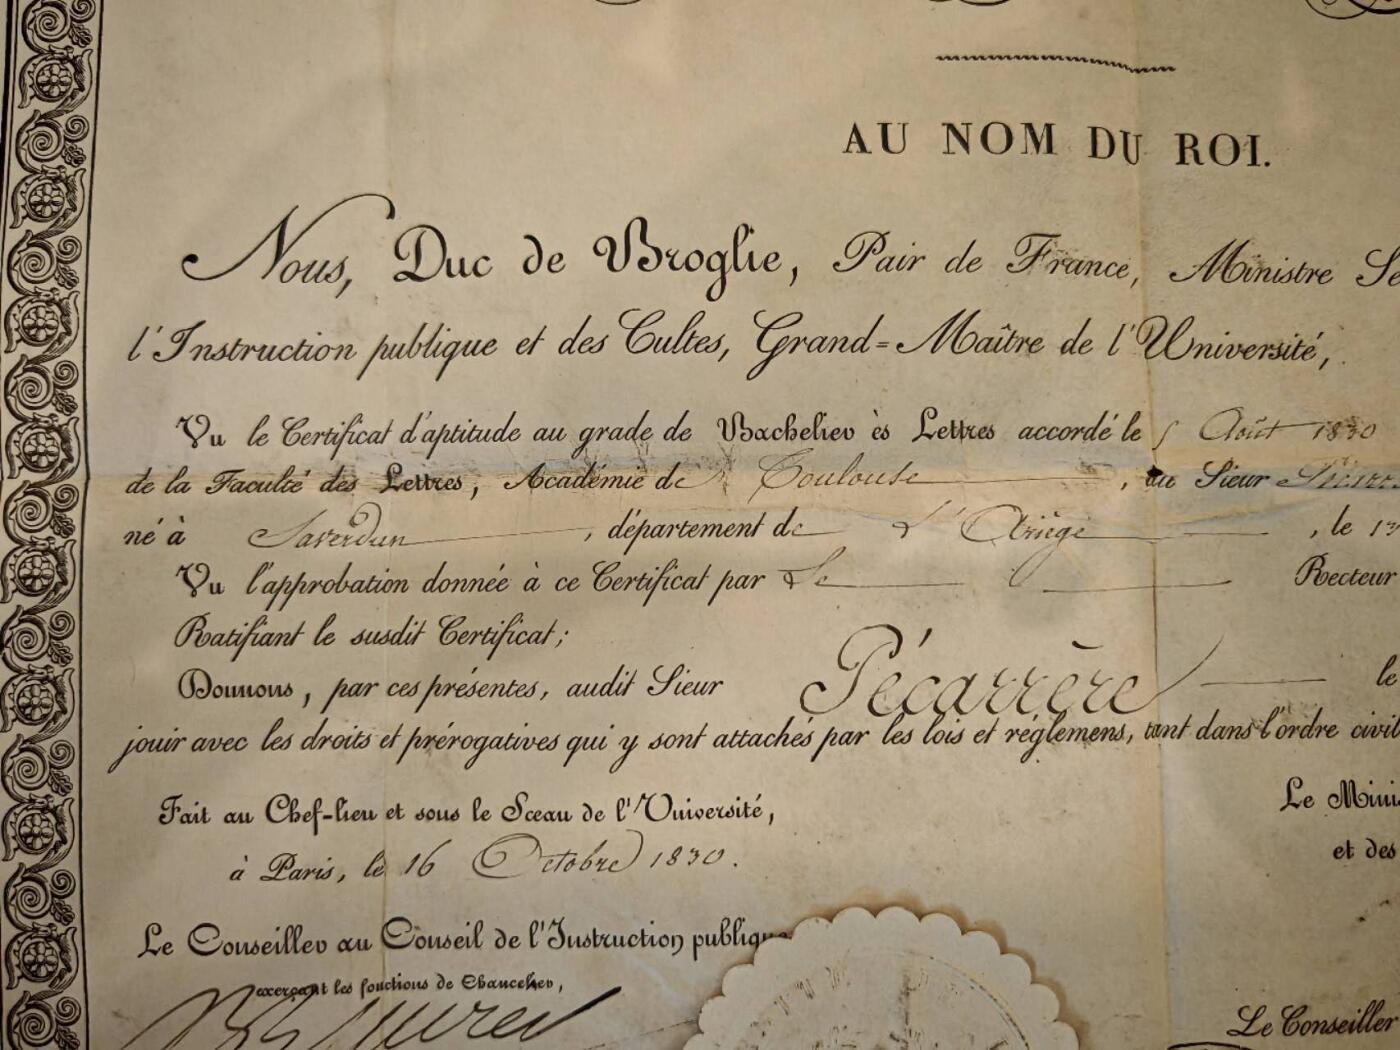 AU NOM DU ROI.
Nous, Duc de Broglie, Pair de France, Ministre Se
l'Instruction publique et des Cultes, Grand=Maître de l'Université,
Vu le Certificat d'aptitude au grade de Bachelier ès Lettres accordé le 5 Août 1830
de la Faculté des Lettres, Académie de Toulouse, au Sieur
né à Saverdun, département de L'Ariège, le 13
Vu l'approbation donnée à ce Certificat par Le Recteur
Ratifiant le susdit Certificat;
Donnons, par ces présentes, audit Sieur Pécarrère le
jouir avec les droits et prérogatives qui y sont attachés par les lois et réglemens, tant dans l'ordre civil
Le Minis
Fait au Chef-lieu et sous le Sceau de l'Université,
et des
à Paris, le 16 Octobre 1830.
Le Conseiller au Conseil de l'Instruction publique
exerçant les fonctions de Chancelier,
Le Conseiller